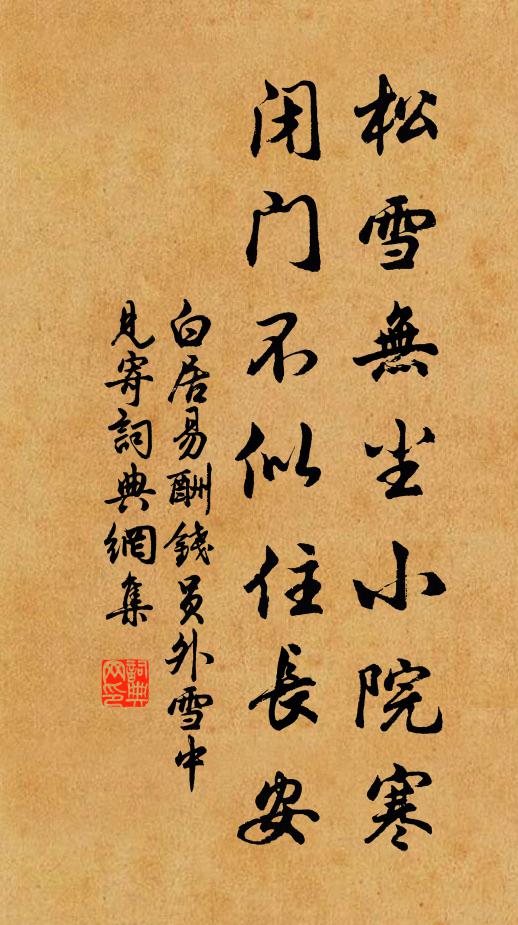 松雪無塵小院寒
闭门不似住長安
白居易酬錢员外雪中
見寄詞典網集
詞典
网印